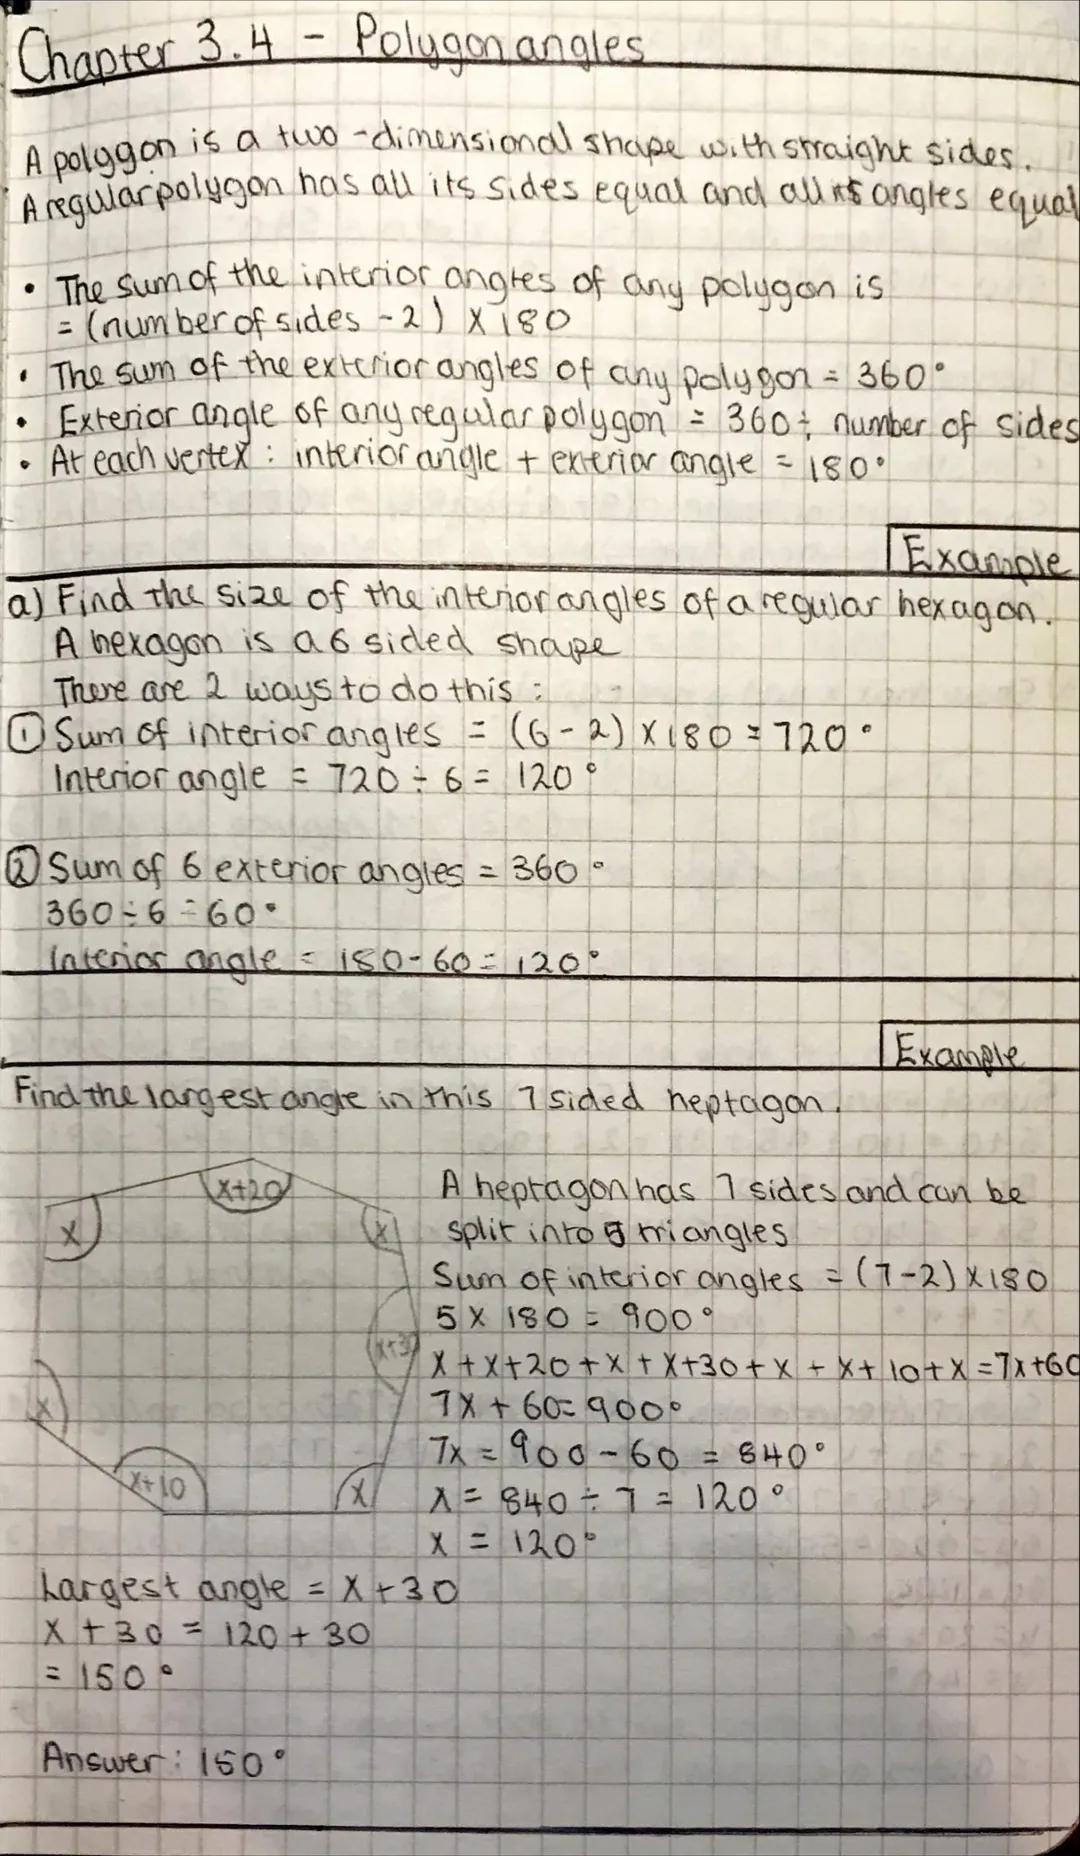 Chapter 3.4 - Polygon angles
A polygon is a two-dimensional shape with straight sides.
A regular polygon has all its sides equal and all its angles equal
• The sum of the interior angles of any polygon is
= (number of sides - 2) × 180
• The sum of the exterior angles of any polygon = 360°
• Exterior angle of any regular polygon = 360 ÷ number of sides
• At each vertex : interior angle + exterior angle = 180°
Example
a) Find the size of the interior angles of a regular hexagon.
A hexagon is a 6 sided shape
There are 2 ways to do this :
① Sum of interior angles = (6 - 2) × 180 = 720°
Interior angle = 720 ÷ 6 = 120°
② Sum of 6 exterior angles = 360°
360 ÷ 6 = 60°
Interior angle = 180 - 60 = 120°
Example
Find the largest angle in this 7 sided heptagon.
x+20
x
x
x+30
x
x+10
x
A heptagon has 7 sides and can be
split into 5 triangles
Sum of interior angles = (7-2) × 180
5 × 180 = 900°
x + x+20 + x + x+30 + x + x+10 + x = 7x+60
7x + 60 = 900°
7x = 900 - 60 = 840°
x = 840 ÷ 7 = 120°
x = 120°
Largest angle = x + 30
x + 30 = 120 + 30
= 150°
Answer: 150°